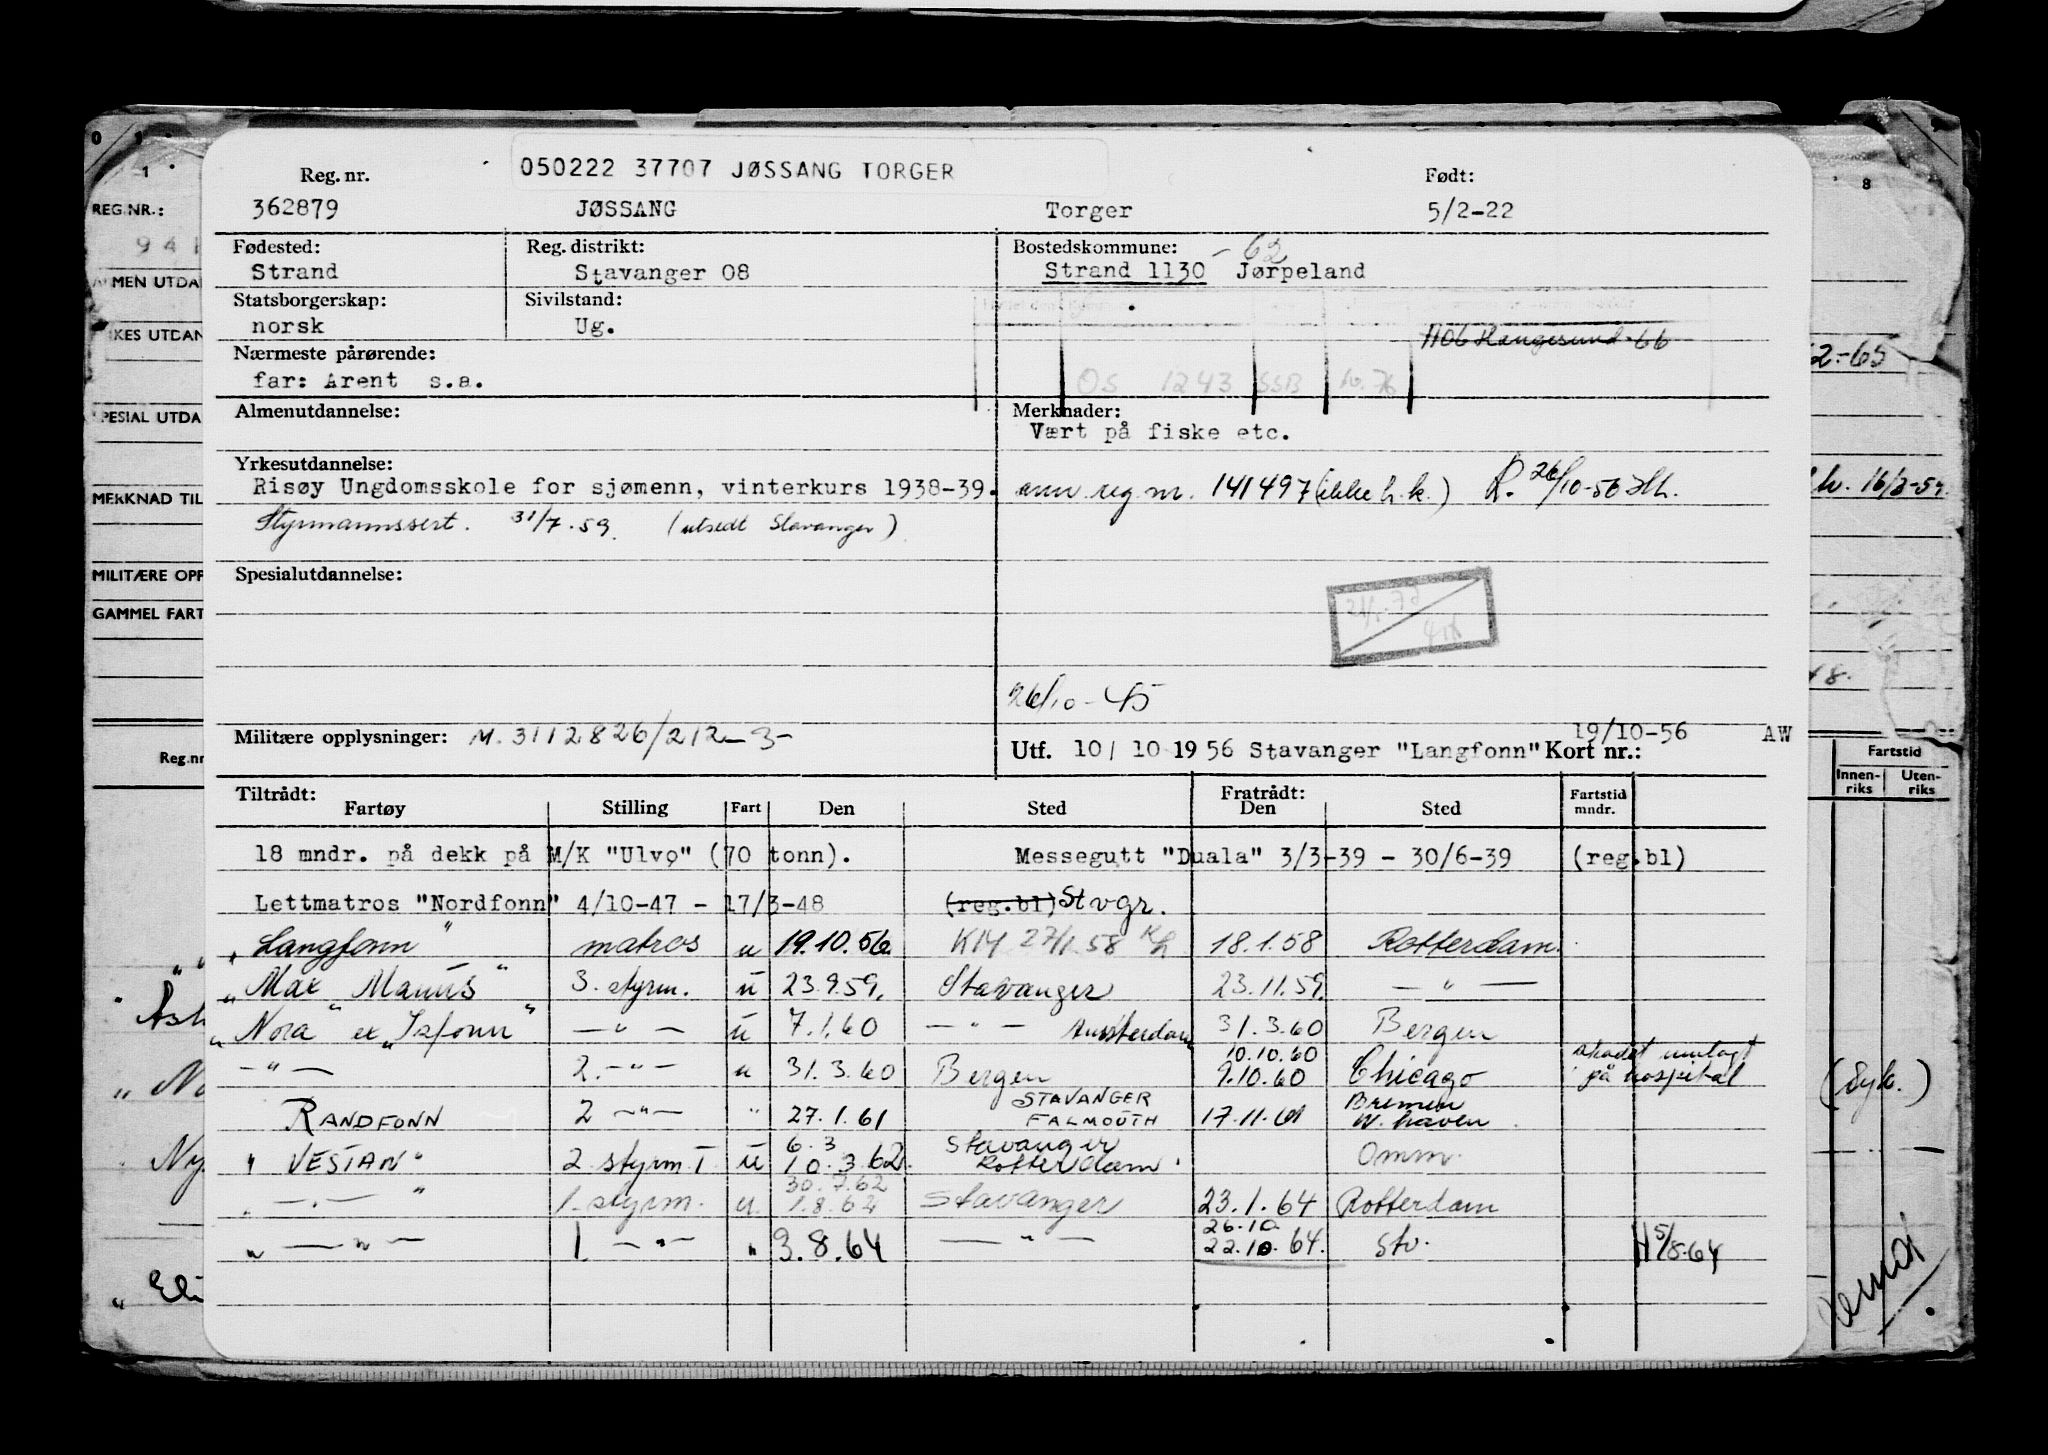 050222 37707 JØSSANG TORGER
Reg. nr. Født:
362879 JØSSANG Torger 5/2-22
Fødested: Reg. distrikt: Bostedskommune: - 62
Strand Stavanger 08 Strand 1130 Jørpeland
Statsborgerskap: Sivilstand:
norsk Ug.
1106 Haugesund-66
Nærmeste pårørende:
far: Arent s.a.
OS 1243 SSB 10.76
Almenutdannelse: Merknader:
Vært på fiske etc.
Yrkesutdannelse:
Risøy Ungdomsskole for sjømenn, vinterkurs 1938-39. ann. reg. nr. 141497 (ikke h.k.) R. 26/10-56
Styrmannssert. 31/7.59. (utsedt Stavanger)
Spesialutdannelse:
26/10-45
Militære opplysninger: M. 3112826/212-3- 19/10-56 AW
Utf. 10/ 10 1956 Stavanger "Langfonn" Kort nr.:
Tiltrådt: Fratrådt:
Fartøy Stilling Fart Den Sted Den Sted Fartstid mndr.
18 mndr. på dekk på M/K "Ulvø" (70 tonn). Messegutt "Duala" 3/3-39 - 30/6-39 (reg.bl)
Lettmatros "Nordfonn" 4/10-47 - 17/3-48 (reg.bl) Stvgr.
"Langfonn" matros u 19.10.56 27/1.58 18.1.58 Rotterdam.
"Max Manus" 3. styrm. u 23.9.59. Stavanger 23.11.59. — " —
"Nora" ex "Isfonn" — " — u 7.1.60 — " — Amsterdam 31.3.60 Bergen
— " — 2. — " — u 31.3.60 Bergen 10.10.60 9.10.60 Chicago skadet innlagt på hospital
RANDFONN 2 — " — " 27.1.61 STAVANGER FALMOUTH 17.11.61 Bremen W. haven
"VESTAN" 2. styrm I u 6.3 10.3.62. Stavanger Rotterdam. Omm.
" — " — " 1. styrm. u. 30.7.62 1.8.62 Stavanger 23.1.64 Rotterdam
" — " — 1. — " — " 3.8.64 — " — 26.10 22.10.64. Stv. H 5/8-64
REG.NR.:
941
MERKNAD TIL
GAMMEL FART
Reg.nr
Fartstid
Innen-riks Uten-riks
1
8
2-65
16/3-59
48.
(Syk.)